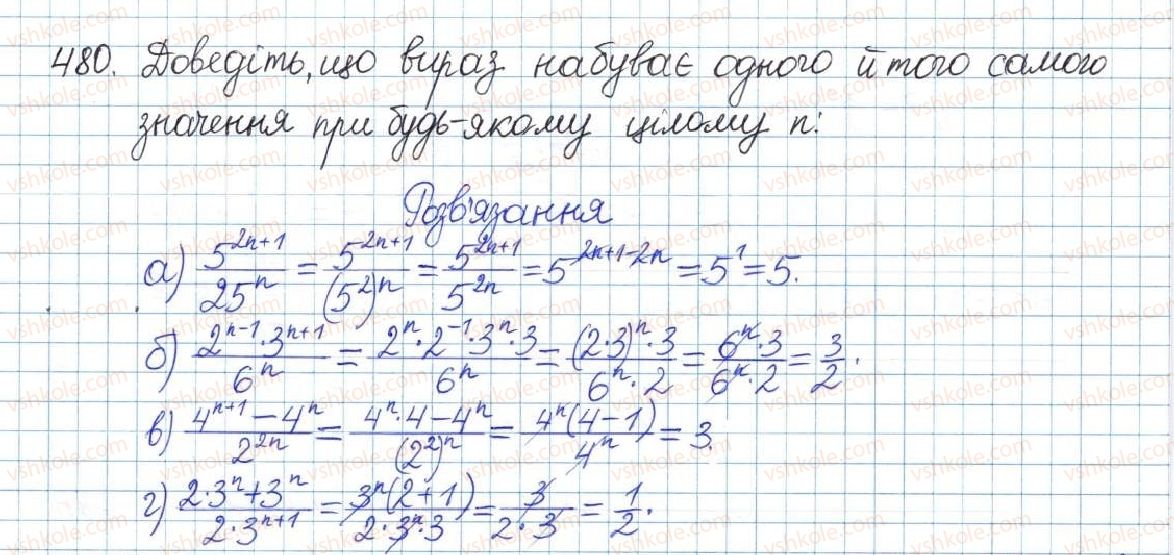 480. Доведіть, що вираз набуває одного й того самого
значення при будь-якому цілому n:
Розв'язання
а) 5^(2n+1)/25^n = 5^(2n+1)/(5^2)^n = 5^(2n+1)/5^(2n) = 5^(2n+1-2n) = 5^1 = 5.
б) (2^(n-1)·3^(n+1))/6^n = (2^n·2^(-1)·3^n·3)/6^n = ((2·3)^n·3)/(6^n·2) = (6^n·3)/(6^n·2) = 3/2.
в) (4^(n+1) - 4^n)/2^(2n) = (4^n·4 - 4^n)/(2^2)^n = 4^n(4-1)/4^n = 3.
г) (2·3^n + 3^n)/(2·3^(n+1)) = 3^n(2+1)/(2·3^n·3) = 3/(2·3) = 1/2.